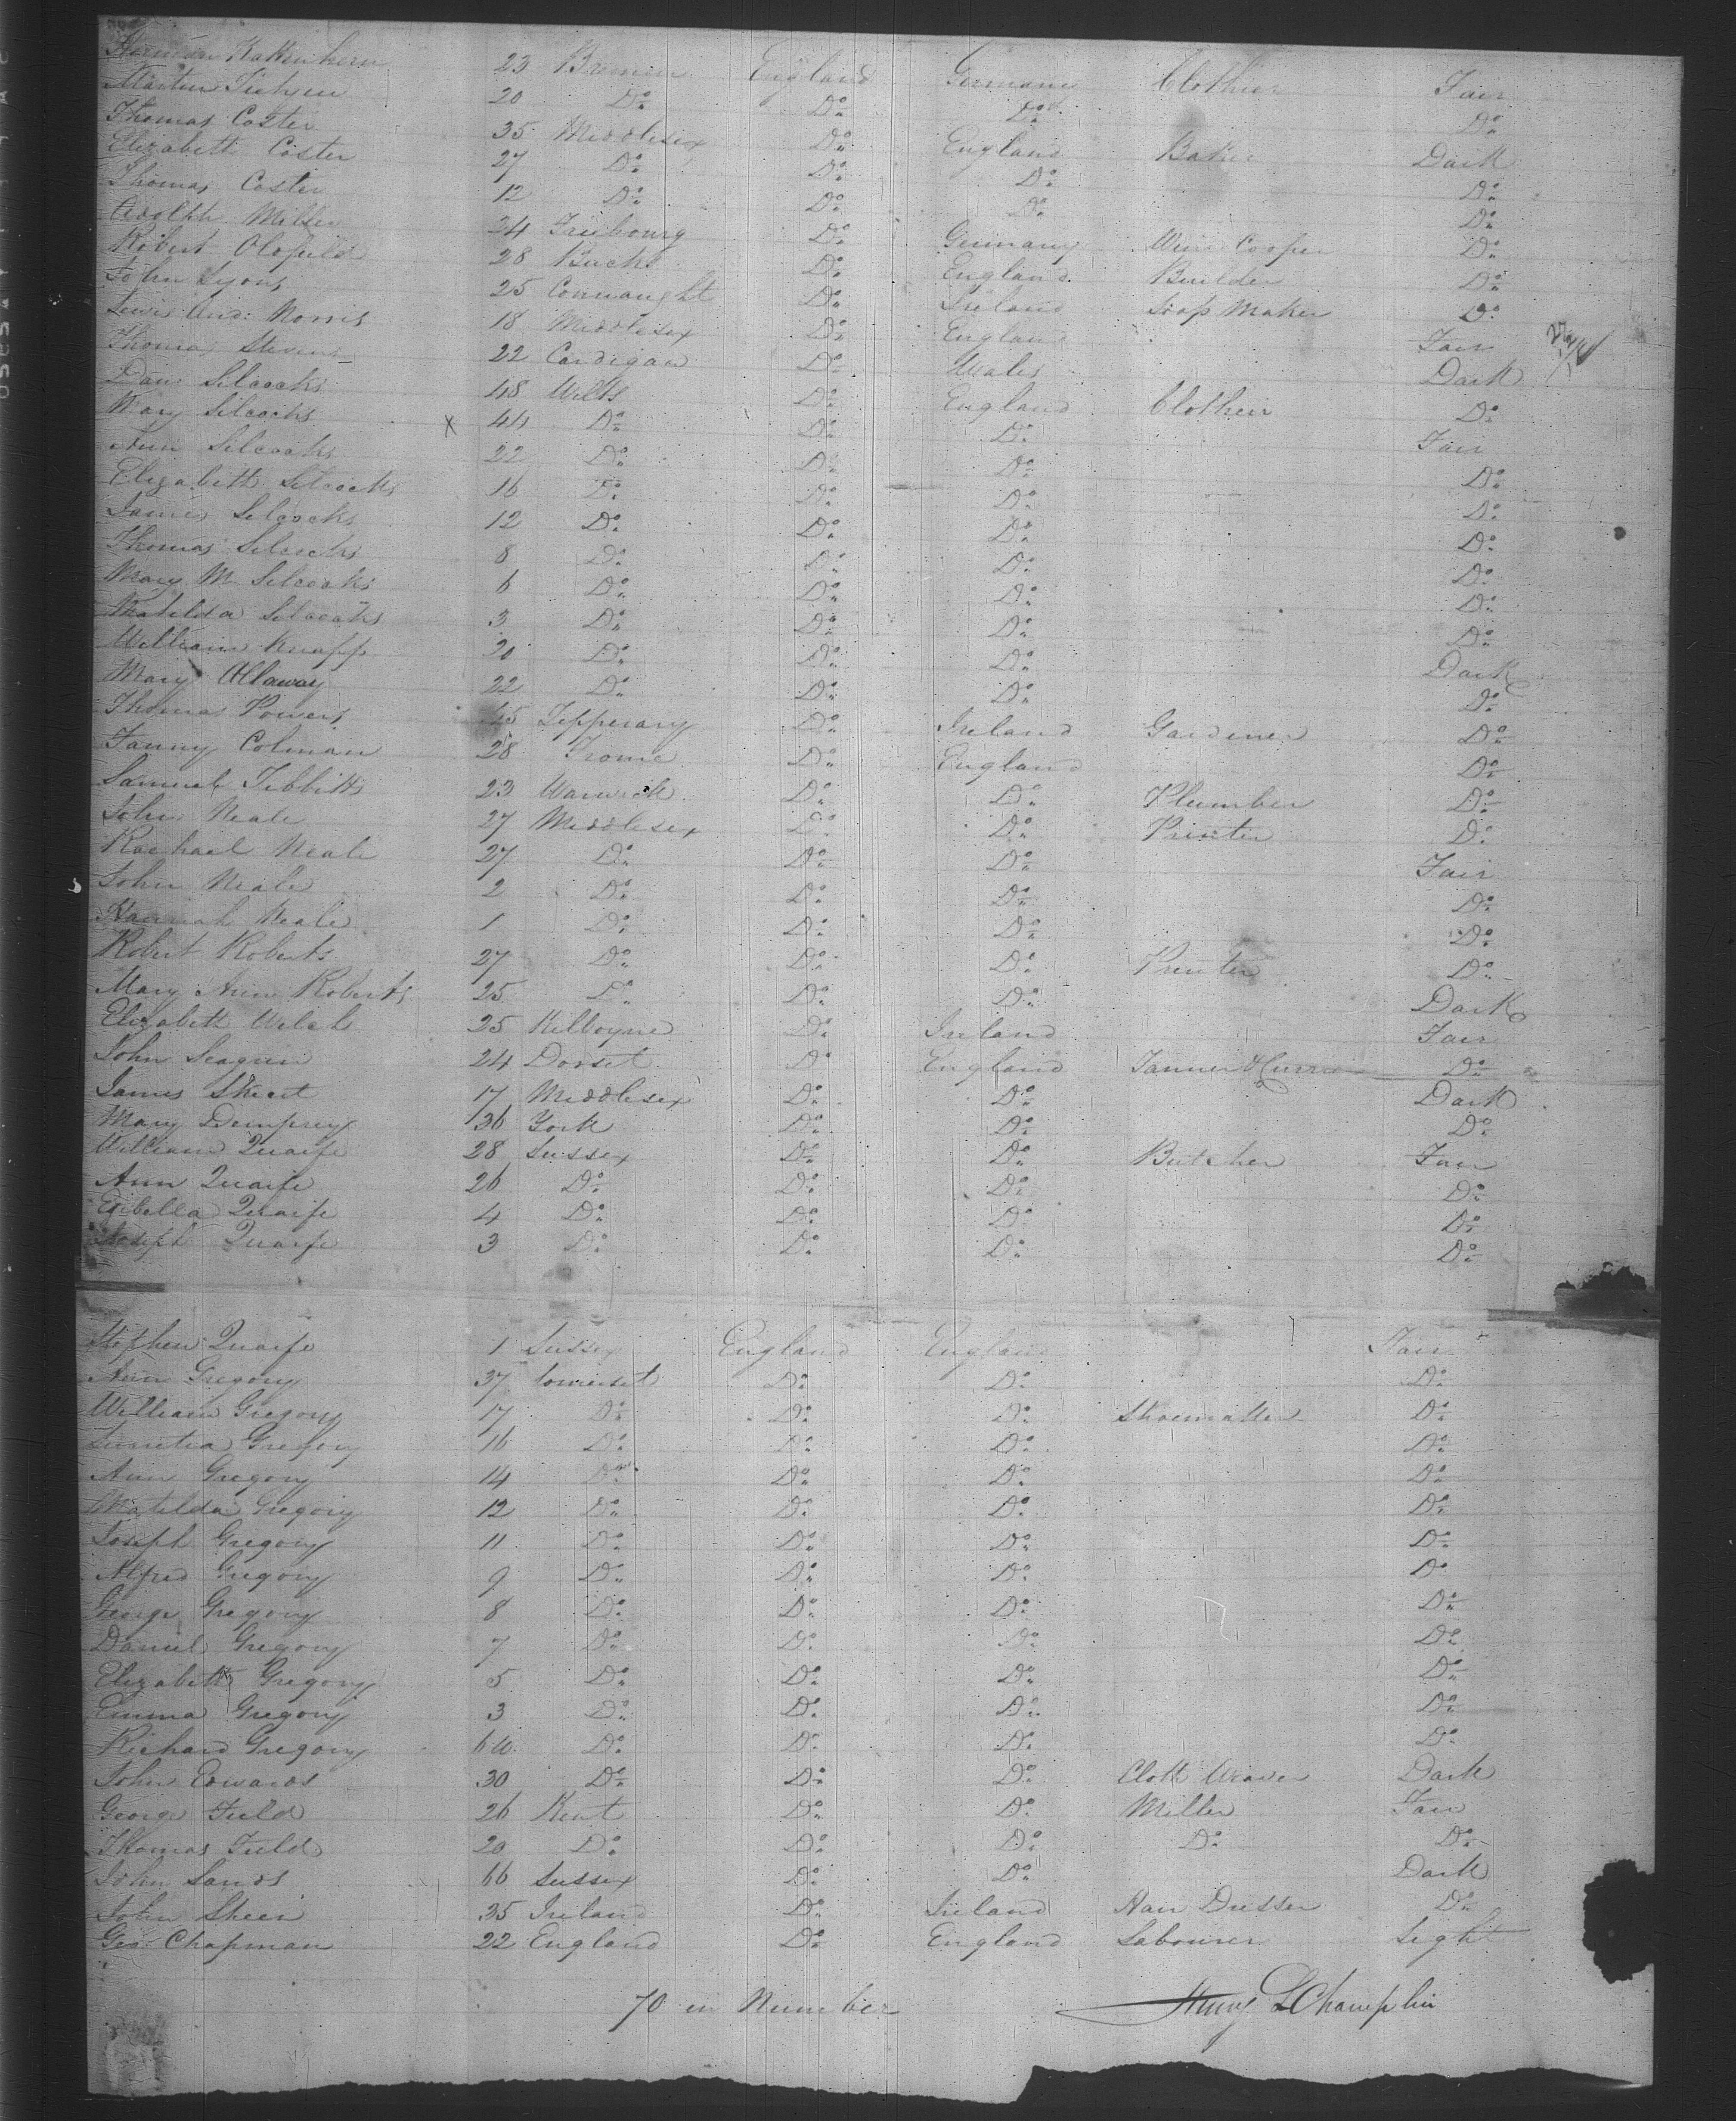 Herman Kattenhorn 23 Bremen England Germany Clothier Fair
Martin Tietjen 20 Do Do Do Do
Thomas Coster 35 Middlesex Do England Baker Dark
Elizabeth Coster 27 Do Do Do Do
Thomas Coster 12 Do Do Do Do
Adolph Miller 24 Freibourg Do Germany Wine Cooper Do
Robert Olofield 28 Bucks Do England Builder Do
John Lyons 25 Connaught Do Ireland Soap Maker Do
Lewis And: Morris 18 Middlesex Do England Fair
Thomas Stevens 22 Cardigan Do Wales Dark
Dan Silcocks 48 Wilts Do England Clothier Do
Mary Silcocks x 44 Do Do Do Fair
Ann Silcocks 22 Do Do Do Do
Elizabeth Silcocks 16 Do Do Do Do
James Silcocks 12 Do Do Do Do
Thomas Silcocks 8 Do Do Do Do
Mary M Silcocks 6 Do Do Do Do
Matilda Silcocks 3 Do Do Do Do
William Knapp 20 Do Do Do Dark
Mary Allaway 22 Do Do Do Do
Thomas Powers 45 Tipperary Do Ireland Gardener Do
Fanny Colman 28 Frome Do England Do
Samuel Tibbitts 23 Warwick Do Do Plumber Do
John Neale 27 Middlesex Do Do Printer Do
Rachael Neale 27 Do Do Do Fair
John Neale 2 Do Do Do Do
Hannah Neale 1 Do Do Do Do
Robert Roberts 27 Do Do Do Printer Do
Mary Ann Roberts 25 Do Do Do Dark
Elizabeth Welch 25 Kilboyne Do Ireland Fair
John Seagrim 24 Dorset Do England Tanner & Currier Do
James Skeat 17 Middlesex Do Do Dark
Mary Dempsey 36 York Do Do Do
William Quaife 28 Sussex Do Do Butcher Fair
Ann Quaife 26 Do Do Do Do
Quaife 4 Do Do Do Do
Joseph Quaife 3 Do Do Do Do
Stephen Quaife 1 Sussex England England Fair
Ann Gregory 37 Somerset Do Do Do
William Gregory 17 Do Do Do Shoemaker Do
Gregory 16 Do Do Do Do
Ann Gregory 14 Do Do Do Do
Matilda Gregory 12 Do Do Do Do
Joseph Gregory 11 Do Do Do Do
Alfred Gregory 9 Do Do Do Do
George Gregory 8 Do Do Do Do
Daniel Gregory 7 Do Do Do Do
Elizabeth Gregory 5 Do Do Do Do
Emma Gregory 3 Do Do Do Do
Richard Gregory 6 w. Do Do Do Do
John Edwards 30 Do Do Do Cloth Weaver Dark
George Field 26 Kent Do Do Miller Fair
Thomas Field 20 Do Do Do Do Do
John Sands 66 Sussex Do Do Dark
John Sheen 35 Ireland Do Ireland Hair Dresser Do
Geo: Chapman 22 England Do England Labourer Light
70 in Number Henry L Champlin